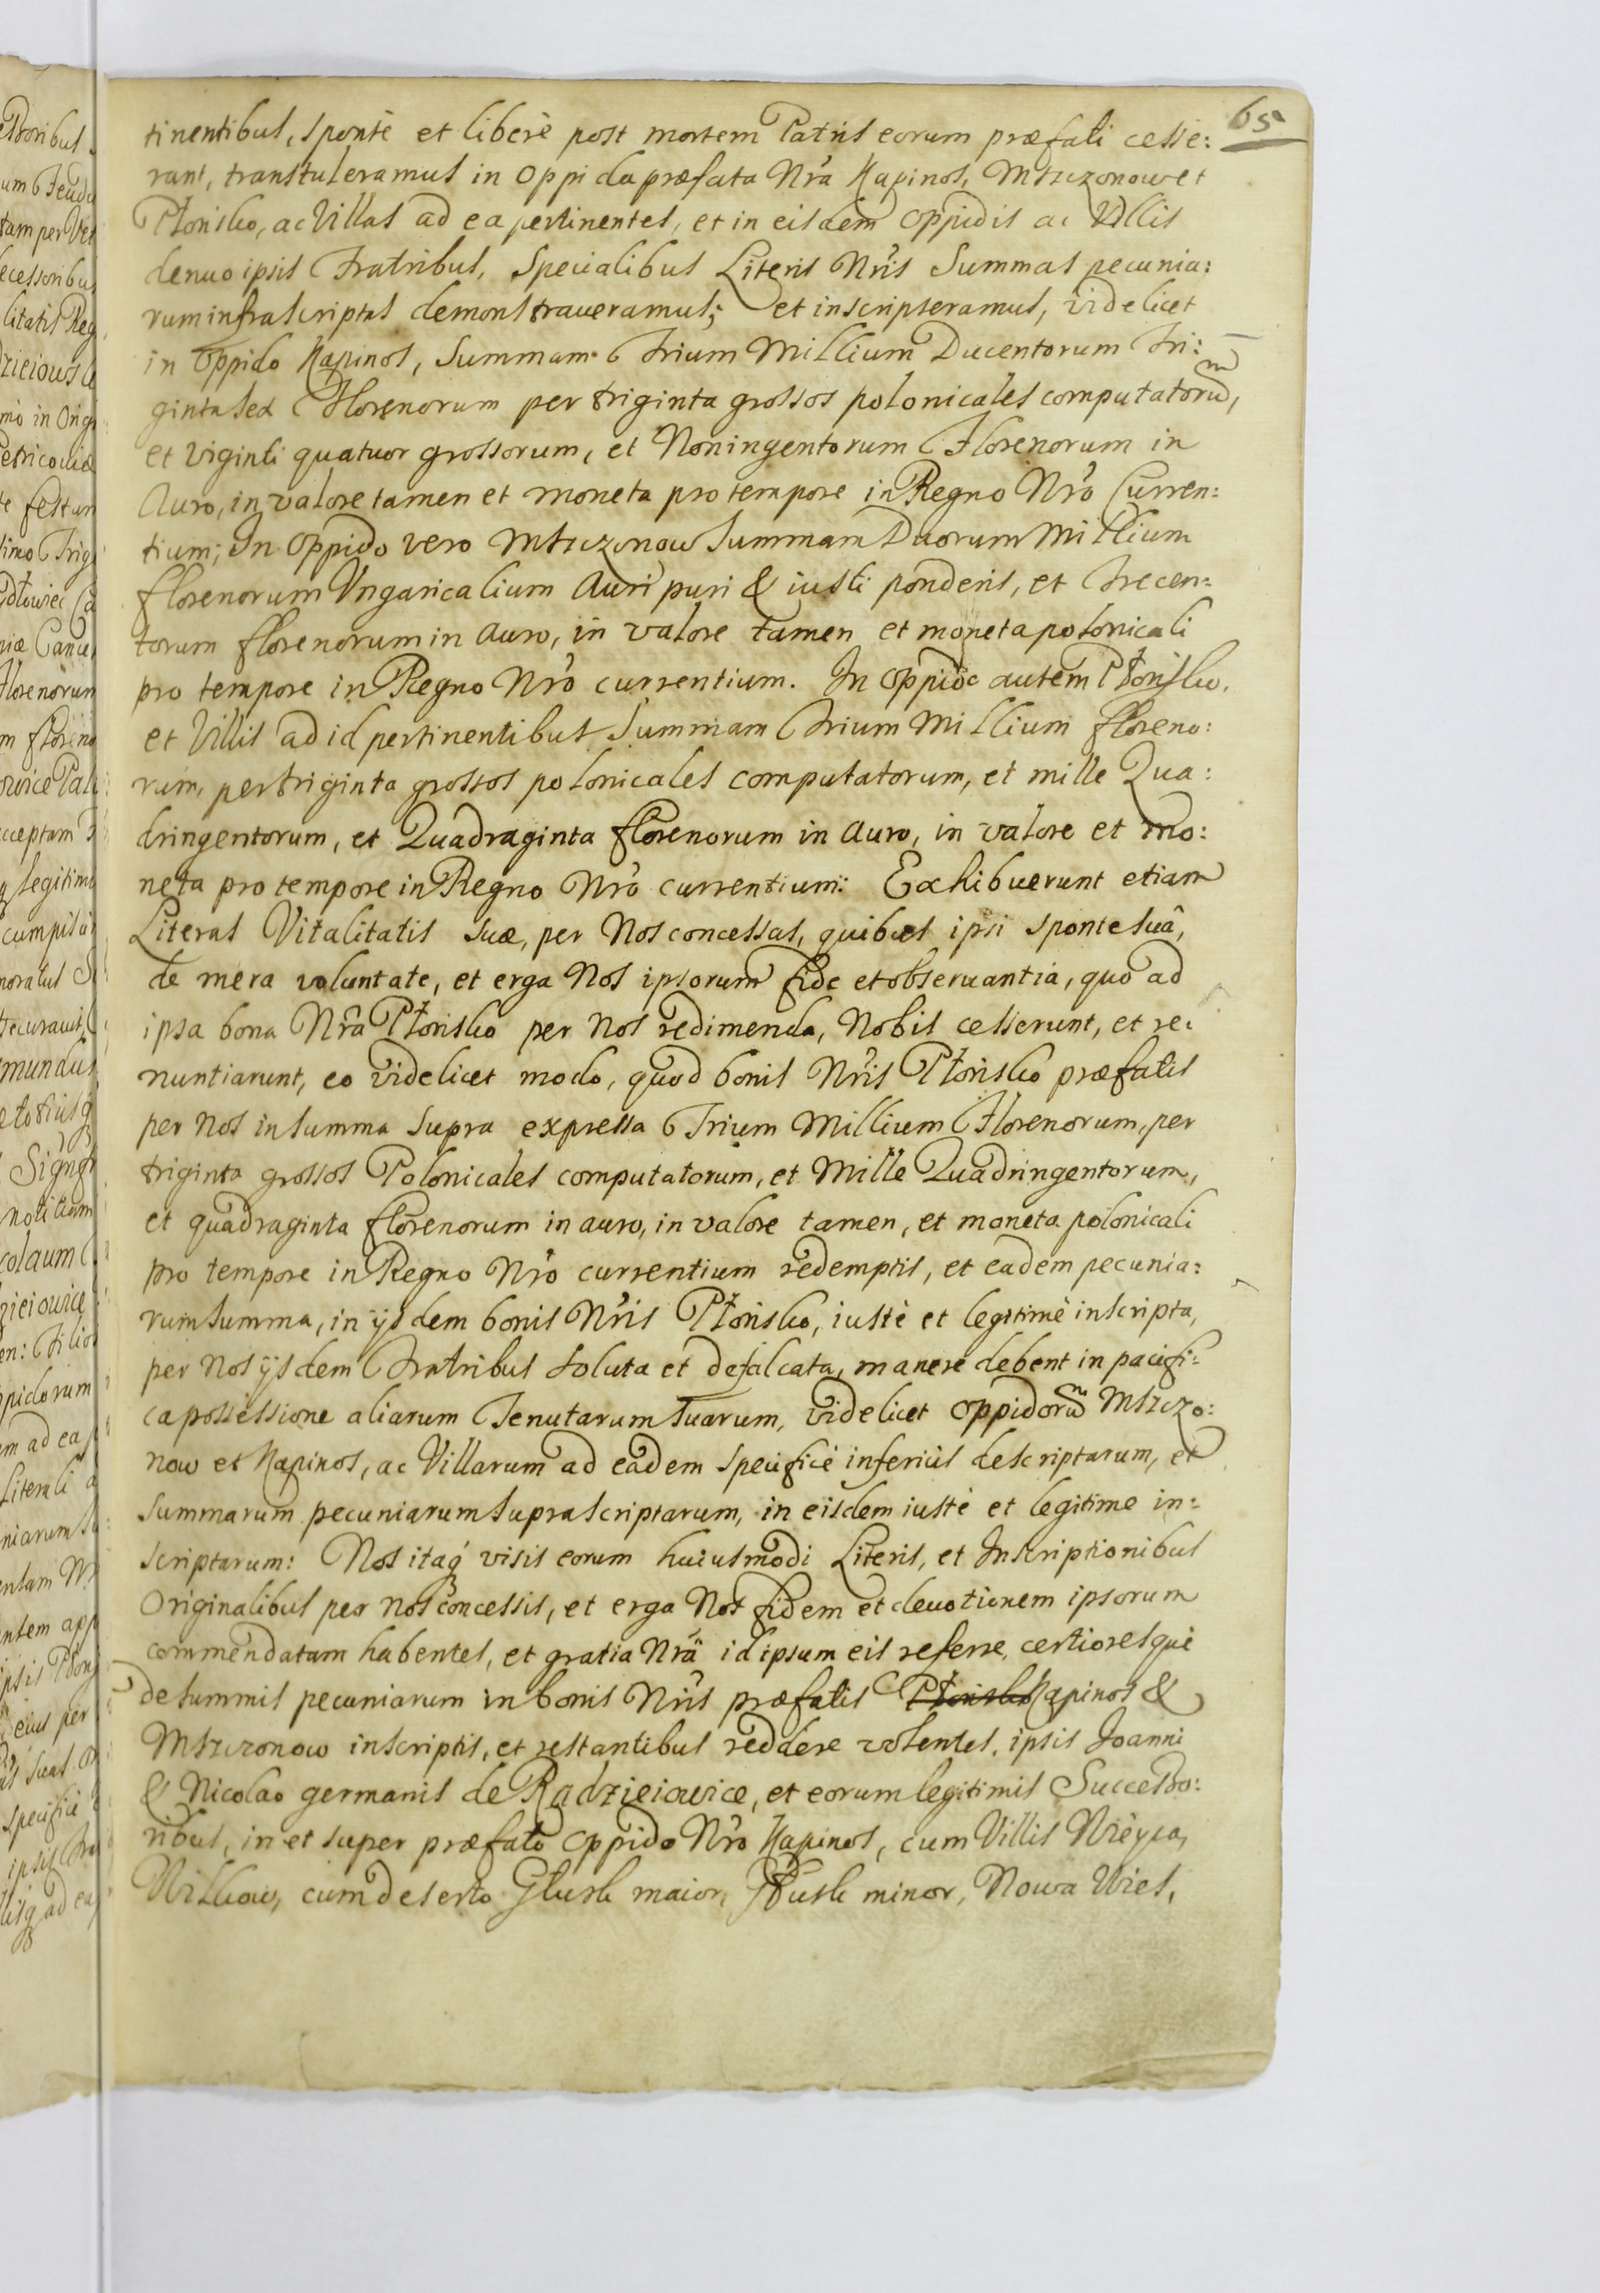 65
tinentibus, sponte et liberè post mortem Patris eorum præfati cesse:
rant, transtuleramus in Oppida præfata Nr̃a Kapinos, Mszczonow et
Płonsko, ac Villas ad ea pertinentes, et in eisdem Oppidis ac Villis
denuo ipsis Fratribus, Specialibus Literis Nr̃is Summas pecunia:
rum infrascriptas demonstraueramus; et inscripseramus, videlicet
in Oppido Kapinos, Summam Trium Millium Ducentorum Tri:
ginta sex Florenorum per triginta grossos polonicales computatorum,
et viginti quatuor grossorum, et Noningentorum Florenorum in
Auro, in valore tamen et moneta pro tempore in Regno Nr̃o Curren:
tium; In Oppido vero Mszczonow Summam Duorum Millium
florenorum Vngaricalium Auri puri & iusti ponderis, et Trecen:
torum florenorum in Auro, in valore tamen et moneta polonicali
pro tempore in Regno Nr̃o currentium. In Oppido autem Płonsko,
et Villis ad id pertinentibus Summam Trium Millium floreno:
rum, per triginta grossos polonicales computatorum, et mille Qua:
dringentorum, et Quadraginta florenorum in Auro, in valore et mo:
neta pro tempore in Regno Nr̃o currentium: Exhibuerunt etiam
Literas Vitalitatis suæ, per Nos concessas, quibus ipsi sponte suâ,
de mera voluntate, et erga Nos ipsorum fide et obseruantia, quo ad
ipsa bona Nr̃a Płonsko per Nos redimenda, Nobis cesserunt, et re:
nuntiarunt, eo videlicet modo, quod bonis Nr̃is Płonsko præfatis
per Nos in summa supra expressa Trium Millium Florenorum, per
triginta grossos Polonicales computatorum, et Mille Quadringentorum,
et quadraginta florenorum in auro, in valore tamen, et moneta polonicali
pro tempore in Regno Nr̃o currentium redemptis, et eadem pecunia:
rum summa, in ijsdem bonis Nr̃is Płonsko, iustè et legitimè inscripta,
per Nos ijsdem Fratribus soluta et defalcata, manere debent in pacifi:
ca possessione aliarum Tenutarum suarum, videlicet Oppidorum Mszczo:
now et Kapinos, ac Villarum ad eadem specificè inferiùs descriptarum, et
summarum pecuniarum suprascriptarum, in eisdem iustè et legitime in:
scriptarum: Nos itaq́ visis eorum huiusmodi Literis, et Inscriptionibus
Originalibus per Nos concessis, et erga Nos fidem et deuotionem ipsorum
commendatam habentes, et gratia Nr̃a id ipsum eis referre, certioresque
de summis pecuniarum in bonis Nr̃is præfatis Płonsko Kapinos &
Mszczonow inscriptis, et restantibus reddere volentes, ipsis Joanni
& Nicolao germanis de Radzieiowice, et eorum legitimis Successo:
ribus, in et super præfato Oppido Nr̃o Kapinos, cum Villis Wieyca,
Wilkow, cum deserto Głusk maior, Głusk minor, Nowa Wies,